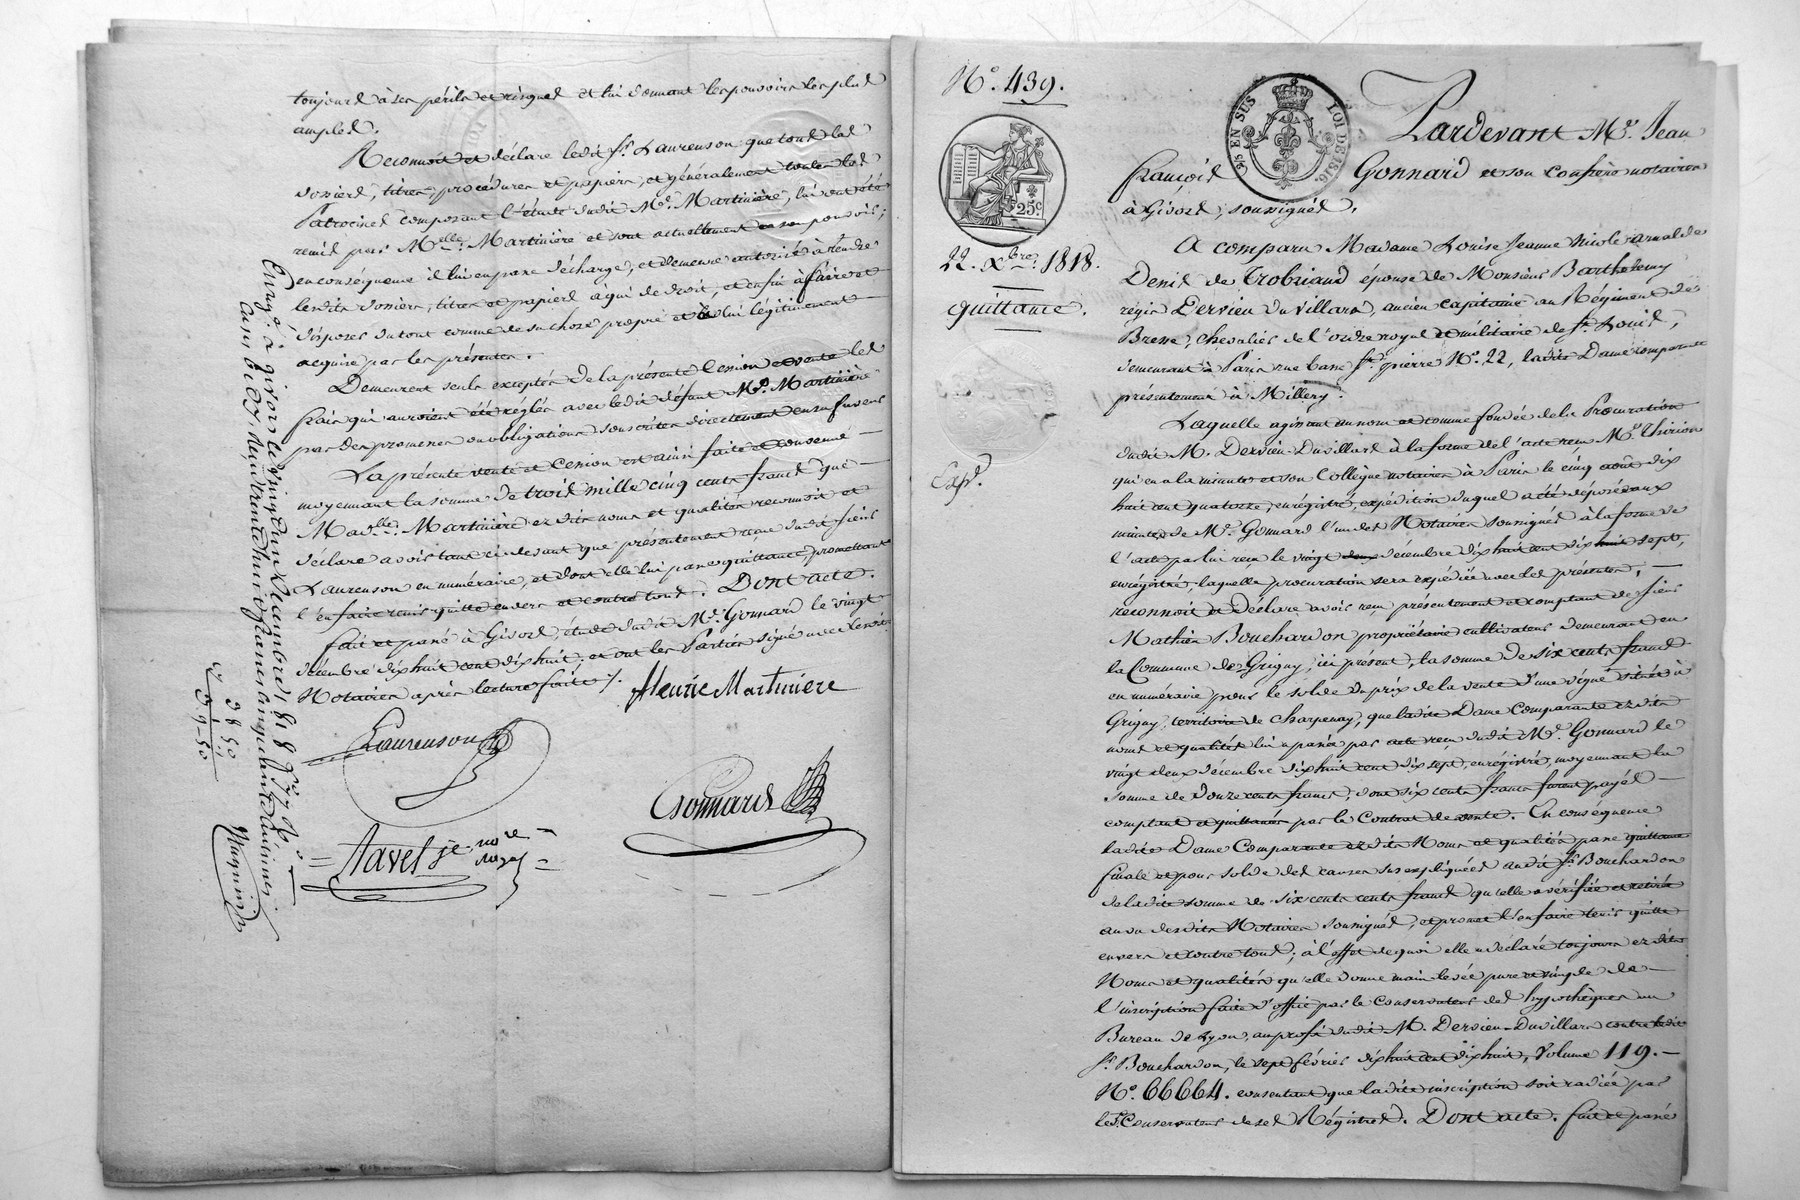 toujours à ses périls et risques et lui donnant les pouvoirs les plus
amples.
Reconnoit et déclare ledit Sr. Laurenson que tous les
dossiers, titres, procédures et papiers, et généralement toutes les
Patrocines composant l'étude dudit Me. Martinière, lui ont été
remis par Melle. Martinière et sont actuellement en son pouvoir;
en conséquence il lui en passe décharge, et demeure autorisé à rendre
lesdits dossiers, titres et papiers à qui de droit, et enfin à faire et
disposer du tout comme de sa chose propre et à lui légitimement
acquise par les présentes.
Demeurent seuls exceptés de la présente Cession et vente les
frais qui auroient été réglés avec ledit défunt Me. Martinière
par des promesses ou obligations souscrites directement en sa faveur
La présente vente et Cession est ainsi faite et consentie
moyennant la somme de trois mille cinq cents francs que
Madlle. Martinière ez dits noms et qualités reconnoit et
déclare avoir tant ci devant que présentement reçue dudit Sieur
Laurenson en numéraire, et dont elle lui passe quittance, promettant
l'en faire tenir quitte envers et contre tous. Dont acte.
fait et passé à Givors, étude dudit Me. Gonnard le vingt
décembre dix huit cent dix huit, et ont les Parties signé avec les dits
Notaires après lecture faite ./.
fleurie Martinière
Laurenson
Gonnard
Tavel je. nore
noyal
Enregé. à givors le vingt un Xcembre 1818
3850
385
N°. 439.
25c
22. Xbre. 1818.
quittance.
Exp.
C. 25 EN SUS
LOI DE 1816.
Pardevant Me. Jean
françois Gonnard et son Confrère notaires
à Givors, soussignés,
A comparu Madame Louise Jeanne Nicole arnalde
Denis de Trobriand épouse de Monsieur Barthelemy
régis Dervieu du Villars, ancien capitaine au Régiment de
Bresse, chevalier de l'ordre royal et militaire de St. Louis,
demeurant à Paris rue basse St. pierre N°. 22, ladite Dame comparante
présentement à Millery.
Laquelle agissant au nom et comme fondée de la Procuration
dudit M. Dervieu-Duvillars à la forme de l'acte reçu Me. Thirion
qui en a la minute et son Collègue notaires à Paris le cinq août dix
huit cent quatorze, enregistré, expédition duquel a été déposée aux
minutes de Me. Gonnard l'un des Notaires soussignés à la forme de
l'acte par lui reçu le vingt deux décembre dix huit cent dix huit sept,
enregistré, laquelle procuration sera expédiée avec les présentes,
reconnoit et Déclare avoir reçu présentement et comptant de Sieur
Mathieu Bouchardon propriétaire cultivateur demeurant en
la Commune de Grigny, ici présent, la somme de six cents francs
en numéraire pour le solde du prix de la vente d'une vigne située à
Grigny, territoire de Charpenay, que ladite Dame Comparante ez dits
noms et qualités lui a passée par acte reçu dudit Me. Gonnard le
vingt deux décembre dix huit cent dix sept, enregistré, moyennant la
somme de Douze cents francs, dont six cents francs furent payés
comptant et quittancés par le Contrat de vente. En conséquence
ladite Dame Comparante ez dits Noms et qualités passe quittance
finale et pour solde des causes sus expliquées audit Sr. Bouchardon
de ladite somme de six cents cents francs qu'elle a vérifiée et retirée
au vu des dits Notaires soussignés, et promet l'en faire tenir quitte
envers et contre tous; à l'effet de quoi elle a déclaré toujours ez dits
Noms et qualités qu'elle donne main levée pure et simple de
l'inscription faite d'office par le Conservateur des hypothèques au
Bureau de Lyon, au profit dudit M. Dervieu-Duvillars contre ledit
Sr. Bouchardon, le sept février dix huit cent dix huit, Volume 119.
N°. 66664. consentant que ladite inscription soit radiée par
le Sr. Conservateur de ses Régistres. Dont acte. fait et passé